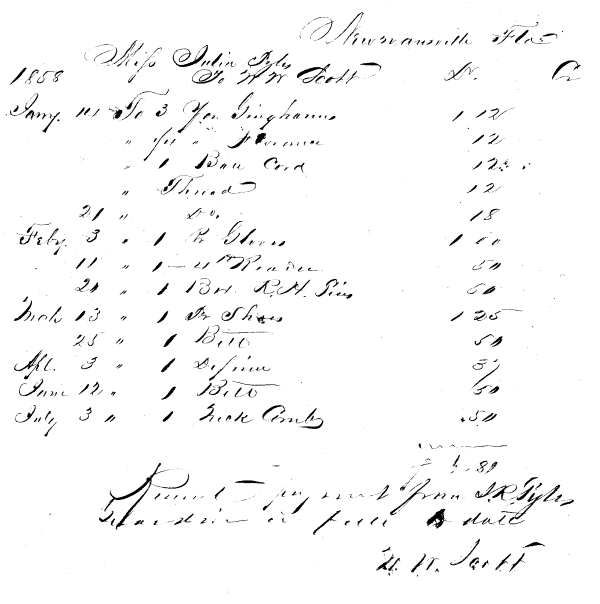 Newnansville Fla
Miss Julia Pyles
1858 To W W Scott Dr. Cr
Jany. 14 To 3 Yds Ginghams 1 12
" " 12
" 1 Cord 12½
" Thread 12
21 " Do. 18
Feby. 3 " 1 Pr Gloves 1 00
11 " 1 4th Reader 50
20 " 1 Box R. H. Pins 50
Mch 13 " 1 Pr Shoes 1 25
25 " 1 Belt 50
Apl. 3 " 1 37
June 12 " 1 Belt 50
July 3 " 1 Neck Comb .50
89
Received payment from J. R. Pyles
Guardian in full to date
W. W. Scott